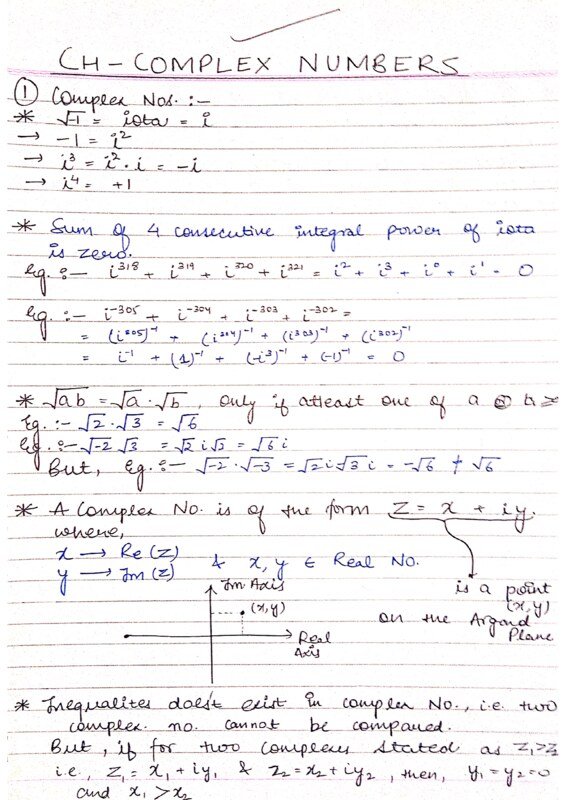 CH - COMPLEX NUMBERS
① Complex Nos. :-
* √-1 = iota = i
→ -1 = i²
→ i³ = i² · i = -i
→ i⁴ = +1
* Sum of 4 consecutive integral power of iota
is zero.
Eg. :- i³¹⁸ + i³¹⁹ + i³²⁰ + i³²¹ = i² + i³ + i⁰ + i¹ = 0
Eg. :- i⁻³⁰⁵ + i⁻³⁰⁴ + i⁻³⁰³ + i⁻³⁰² =
= (i³⁰⁵)⁻¹ + (i³⁰⁴)⁻¹ + (i³⁰³)⁻¹ + (i³⁰²)⁻¹
= i⁻¹ + (1)⁻¹ + (-i³)⁻¹ + (-1)⁻¹ = 0
* √ab = √a · √b, only if atleast one of a
Eg. :- √2 · √3 = √6
Eg. :- √-2 √3 = √2 i √3 = √6 i
But, Eg. :- √-2 · √-3 = √2 i √3 i = -√6 ≠ √6
* A Complex No. is of the form Z = x + iy.
where,
x → Re (Z)
y → Im (Z) & x, y ∈ Real No.
is a point
(x,y)
on the Argand
Plane
Im Axis
(x,y)
Real
Axis
* Inequalites does't exist in complex No., i.e. two
complex no. cannot be compared.
But, if for two complexes stated as Z₁ > Z₂
i.e., Z₁ = x₁ + iy₁ & Z₂ = x₂ + iy₂, then, y₁ = y₂ = 0
and x₁ > x₂